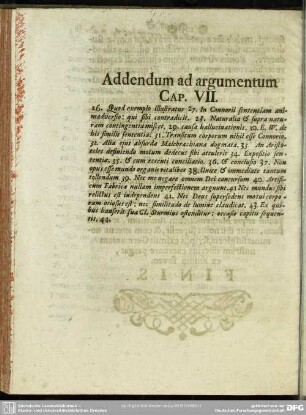 Addendum ad argumentum
CAP. VII.
26. Quod exemplo illustratur 27. In Connorii sententiam ani-
madverso: qui sibi contradicit. 28. Naturalia & supra natu-
ram contingentia miscet. 29. causa hallucinationis. 30. E. W. de
his similis sententia. 31. Transitum corporum nihil esse Connoro.
32. Alia ejus absurda Malebrachiana dogmata. 33. An Aristo-
teles definiendo motum dedecus sibi attulerit 34. Expositio sen-
tentiæ. 35. & cum recentt conciliatio. 36. & conclusio 37. Non
opus esse mundo organis vitalibus 38. Unice & immediate tantum
tollendum 39. Nec me negare omnem Dei concursum 40. Artifi-
cum Fabricæ nullam imperfectionem arguunt. 41 Nec mundus sibi
relictus est independens 42. Nec Deus supersedens motui corpo-
rum otiosus est: nec similitudo de homine claudicat. 43. Ex qui-
bus hauserit sua Cl. Sturmius ostenditur: occasio capitis sequen-
tis. 44.